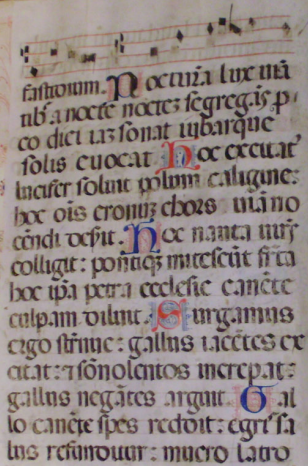 fastidium. Nocturna lux uiã
tibꝰ a nocte noctez segregãs. p
co diei iaz sonat iubarque
solis euocat. Hoc excitatꝰ
lucifer soluit polum caligine:
hoc oĩs erronuz chors uiã no
cẽdi desit. Hoc nauta uirs
colligit: pontiqȝ mitescũt freta
hoc ip̃a petra ecclesie canẽte
culpam diluit. Surgamus
ergo strẽnue: gallus iacẽtes ex
citat: ⁊ sõnolentos increpat:
gallus negãtes arguit. Gal
lo canẽte spes redit: egris sa
lus refunditur: mucro latro